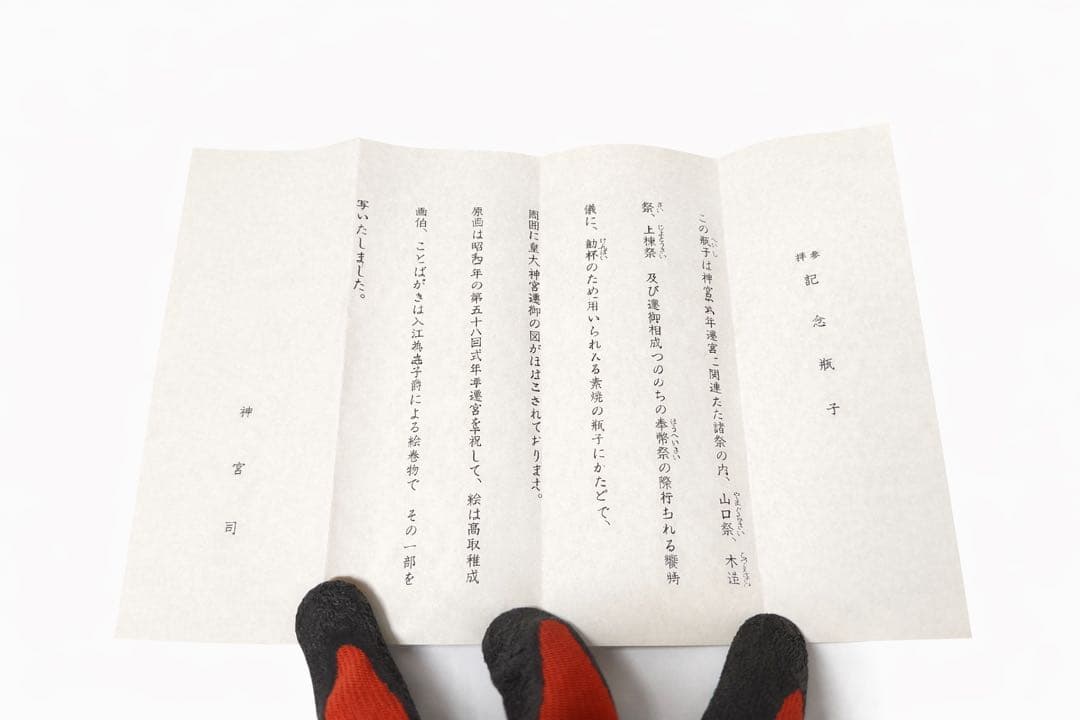 参拝 記念瓶子
この瓶子は神宮年遷宮に関連た諸祭の内、山口祭、木造
祭、上棟祭 及び遷御相成つののちの奉幣祭の際行われる饗
儀に、勧杯のため用いられる素焼の瓶子にかたどで、
周囲に皇大神宮遷御の図がほどこされております。
原画は昭和年の第五十八回式年遷宮を奉祝して、絵は高取稚成
画伯、ことばがきは入江為守子爵による絵巻物で その一部を
写いたしました。
神宮司